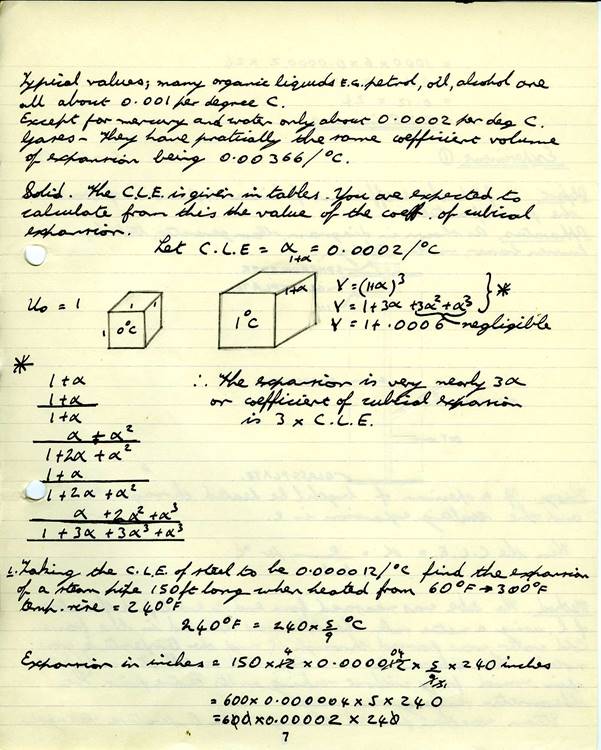 Typical values; many organic liquids E.G. petrol, oil, alcohol are
all about 0.001 per degree C.
Except for mercury and water only about 0.0002 per deg C.
Gases - They have pratically the same coefficient volume
of expansion being 0.00366/°C.
Solid. The C.L.E. is given in tables. You are expected to
calculate from this the value of the coeff. of cubical
expansion.
Let C.L.E = α = 0.0002/°C
1+α
U₀ = 1
1 1
1 0°C
1+α
1°C
V = (1+α)³
V = 1 + 3α + 3α² + α³ } *
V = 1 + .0006 negligible
*
1 + α
1 + α
1 + α
α + α²
1 + 2α + α²
1 + α
1 + 2α + α²
α + 2α² + α³
1 + 3α + 3α³ + α³
∴ The expansion is very nearly 3α
or coefficient of cubical expansion
is 3 x C.L.E.
1. Taking the C.L.E of steel to be 0.000012/°C find the expansion
of a steam pipe 150ft long when heated from 60°F → 300°F
temp. rise = 240°F
240°F = 240 x 5/9 °C
Expansion in inches = 150 x 12 x 0.000012 x 5/9 x 240 inches
4 04
= 600 x 0.000004 x 5 x 240
= 600 x 0.00002 x 240
7